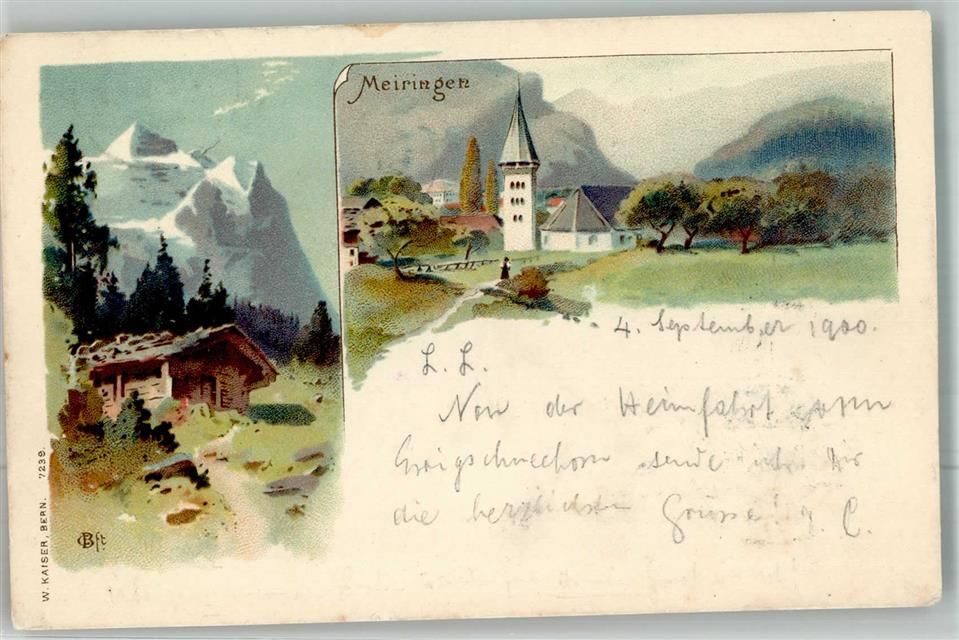 Meiringen
4. September 1900.
L. L.
Von der Heimfahrt vom
sende ich Dir
die herzlichsten Grüsse
W. KAISER, BERN. 7239.